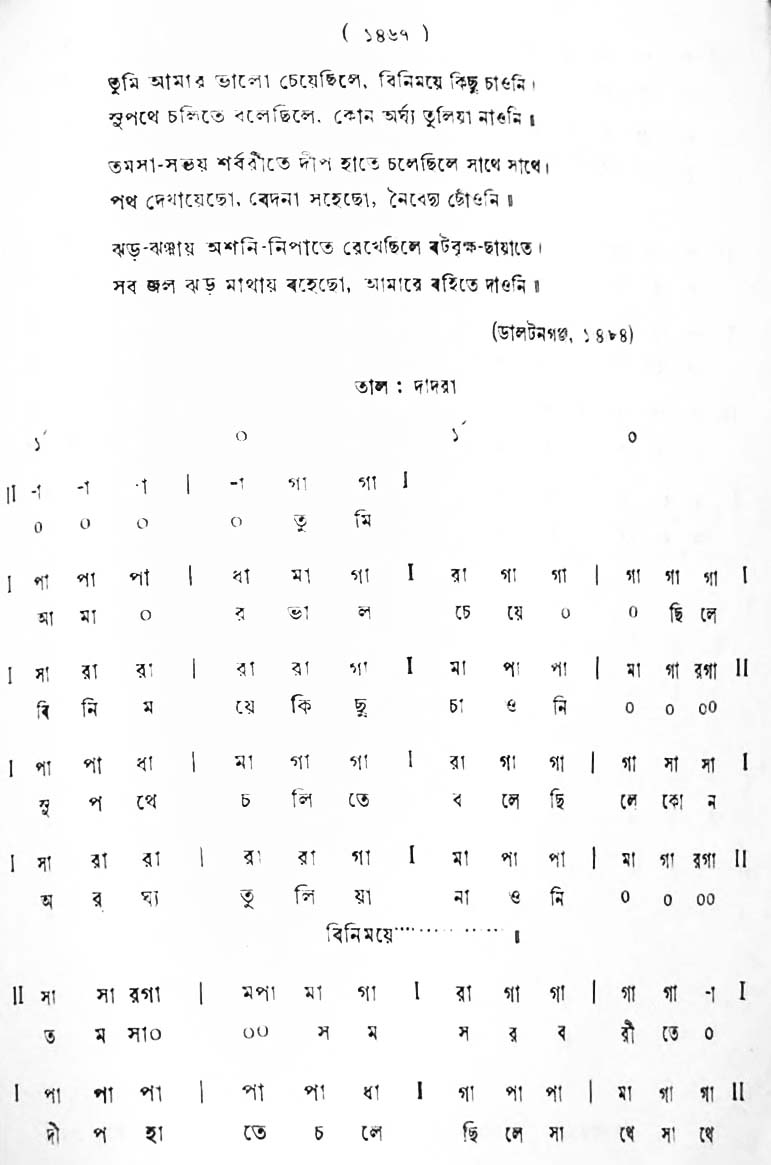 ( ১৪৬৭ )
তুমি আমার ভালো চেয়েছিলে, বিনিময়ে কিছু চাওনি।
সুপথে চলিতে বলেছিলে, কোন অর্ঘ্য তুলিয়া নাওনি॥
তমসা-সভয় শর্বরীতে দীপ হাতে চলেছিলে সাথে সাথে।
পথ দেখায়েছো, বেদনা সহেছো, নৈবেদ্য ছোঁওনি॥
ঝড়-ঝঞ্ঝায় অশনি-নিপাতে রেখেছিলে বটবৃক্ষ-ছায়াতে।
সব জল ঝড় মাথায় বহেছো, আমারে বহিতে দাওনি॥
(ডালটনগঞ্জ, ১৪৮৪)
তাল : দাদরা
১´ ০ ১´ ০
II -া -া -া | -া গা গা I
০ ০ ০ ০ তু মি
I পা পা পা | ধা মা গা I রা গা গা | গা গা গা I
আ মা ০ র ভা ল চে য়ে ০ ০ ছি লে
I সা রা রা | রা রা গা I মা পা পা | মা গা রগা II
বি নি ম য়ে কি ছু চা ও নি ০ ০ ০০
I পা পা ধা | মা গা গা I রা গা গা | গা সা সা I
সু প থে চ লি তে ব লে ছি লে কো ন
I সা রা রা | রা রা গা I মা পা পা | মা গা রগা II
অ র ঘ্য তু লি য়া না ও নি ০ ০ ০০
বিনিময়ে............॥
II সা সা রগা | মপা মা গা I রা গা গা | গা গা -া I
ত ম সা০ ০০ স ম স র ব রী তে ০
I পা পা পা | পা পা ধা I গা পা পা | মা গা গা II
দী প হা তে চ লে ছি লে সা থে সা থে